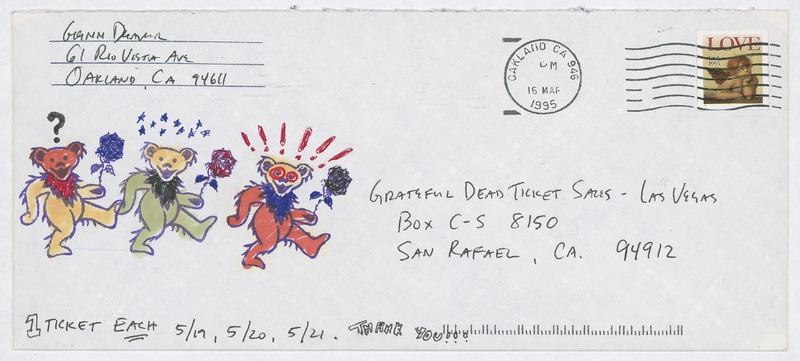 Glenn
61 Rio Vista Ave
Oakland, CA 94611
OAKLAND CA 946
PM
16 MAR
1995
LOVE
1995
?
! ! ! ! ! !
Grateful Dead Ticket Sales - Las Vegas
Box C-S 8150
San Rafael, CA. 94912
1 Ticket Each 5/19, 5/20, 5/21. Thank You!!!